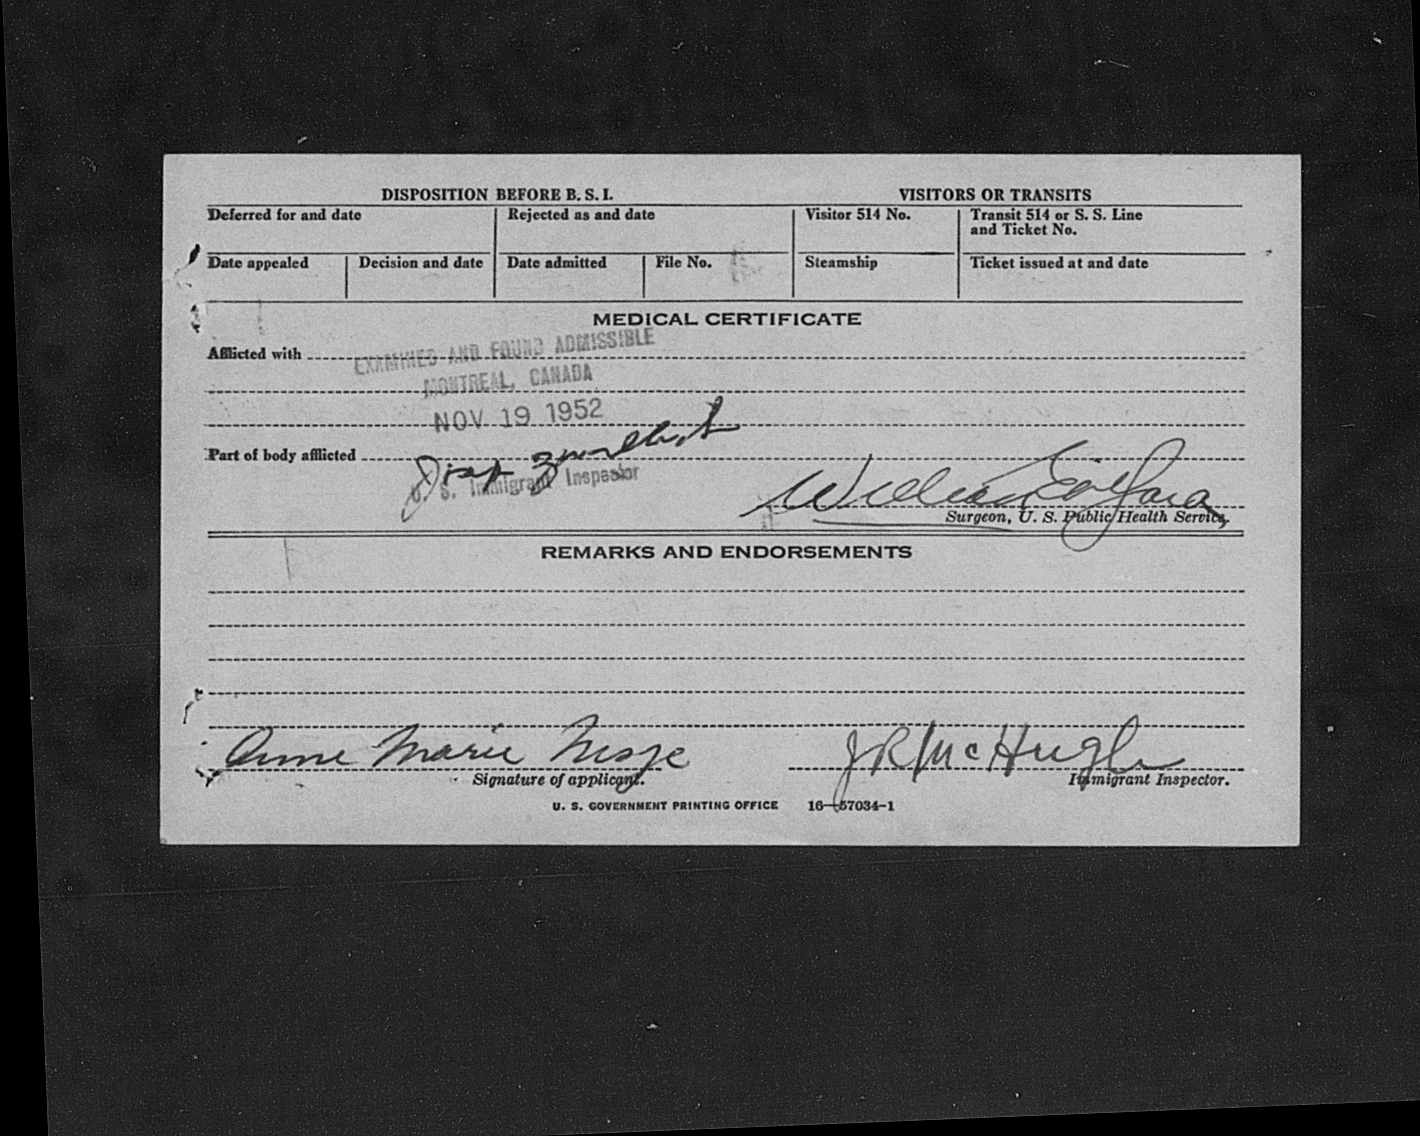 DISPOSITION BEFORE B. S. I.
VISITORS OR TRANSITS
Deferred for and date
Rejected as and date
Visitor 514 No.
Transit 514 or S. S. Line
and Ticket No.
Date appealed
Decision and date
Date admitted
File No.
Steamship
Ticket issued at and date
MEDICAL CERTIFICATE
Afflicted with
EXAMINED AND FOUND ADMISSIBLE
MONTREAL, CANADA
NOV 19 1952
Part of body afflicted
U. S. Immigrant Inspector
William
Surgeon, U. S. Public Health Service,
REMARKS AND ENDORSEMENTS
Anne Marie
J R McHugh
Signature of applicant.
Immigrant Inspector.
U. S. GOVERNMENT PRINTING OFFICE 16—57034-1